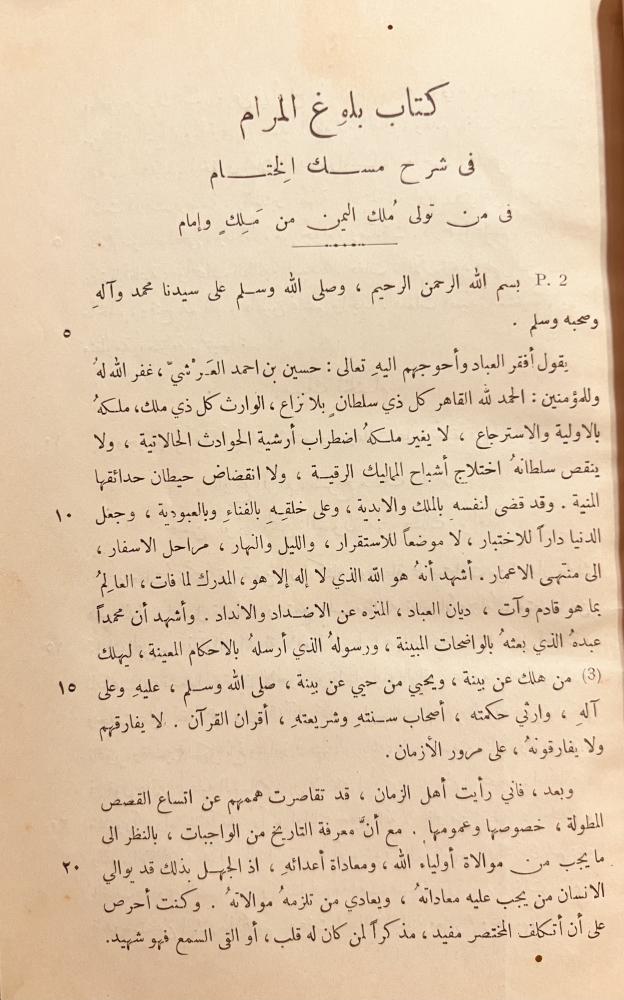 كتاب بلوغ المرام
فى شرح مسك الختام
فى من تولى مُلك اليمن من مَلِكٍ وإمام
P. 2 بسم الله الرحمن الرحيم ، وصلى الله وسلم على سيدنا محمد وآلهِ
وصحبه وسلم .
٥
يقول أفقر العباد وأحوجهم اليهِ تعالى : حسين بن احمد العَرْشيّ ، غفر الله لهُ
وللمؤمنين : الحمد لله القاهر كل ذي سلطان ٍ بلا نزاع ، الوارث كل ذي ملك، ملكهُ
بالاولية والاسترجاع ، لا يغير ملكهُ اضطراب أرشية الحوادث الحالاتية ، ولا
ينقص سلطانهُ اختلاج أشباح المماليك الرقيـة ، ولا انقضاض حيطان حدائقها
المنية . وقد قضى لنفسهِ بالملك والابدية ، وعلى خلقهِ بالفناءِ وبالعبودية ، وجعل ١٠
الدنيا داراً للاختبار ، لا موضعاً للاستقرار ، والليل والنهار ، مراحل الاسفار ،
الى منتهى الاعمار . أشهد أنهُ هو الله الذي لا إله إلا هو ، المدرك لما فات ، العالِمُ
بما هو قادم وآت ، ديان العباد ، المنزه عن الاضداد والانداد . وأشهد أن محمداً
عبدهُ الذي بعثهُ بالواضحات المبينة ، ورسولهُ الذي أرسلهُ بالاحكام المعينة ، ليهلك
(3) من هلك عن بينة ، ويحيي من حيي عن بينة ، صلى الله وسلم ، عليهِ وعلى ١٥
آلهِ ، وارثي حكمته ، أصحاب سنتهِ وشريعتهِ ، أقران القرآن . لا يفارقهم
ولا يفارقونهُ ، على مرور الأزمان .
وبعد ، فاني رأيت أهل الزمان ، قد تقاصرت هممهم عن اتساع القصص
المطولة ، خصوصها وعمومها . مع أنَّ معرفة التاريخ من الواجبات ، بالنظر الى
ما يجب من موالاة أولياء الله ، ومعاداة أعدائهِ ، اذ الجهل بذلك قد يوالي ٢٠
الانسان من يجب عليه معاداتهُ ، ويعادي من تلزمهُ موالاتهُ . وكنت أحرص
على أن أتكلف المختصر مفيد ، مذكراً لمن كان له قلب، أو القى السمع فهو شهيد.